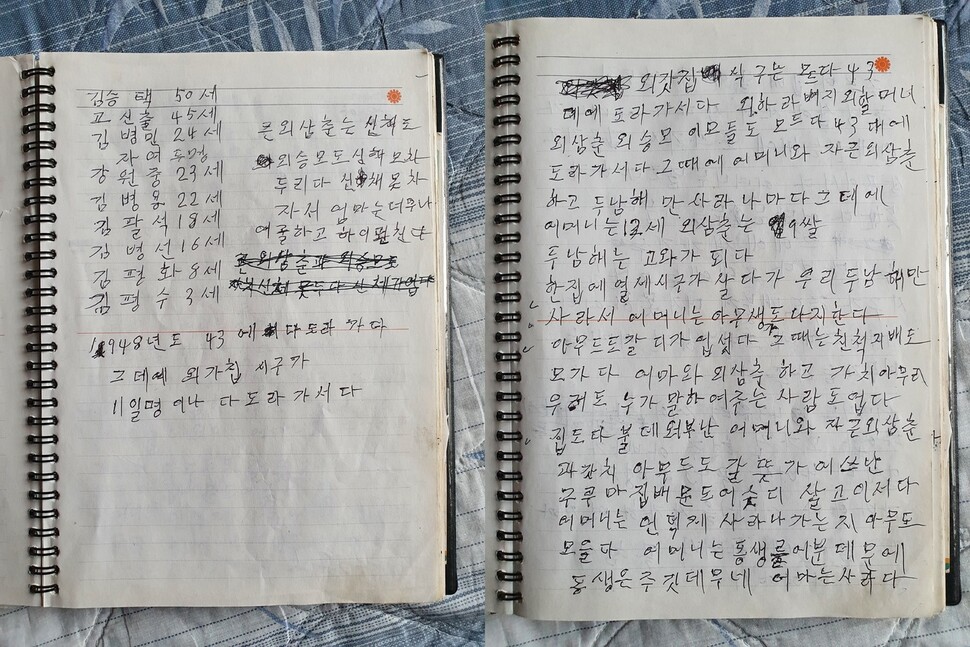 김승택 50세
고신출 45세
김병민 24세
자여 두명
강원중 23세
김병용 22세
김팔석 18세
김병선 16세
김평화 8세
김평수 3세
큰외삼춘는 신해도
외승모도 신해 모차
두리다 신채 못차
자서 엄마는 더무나
여굴하고 하이 친다
1948년도 43에 다 도라가다
그데에 외가칩 시구가
11일명이나 다 도라가서다
외갓집 식구는 모다 43
데에 도라가서다 외하라버지 외할머니
외삼춘 외승모 이모들도 모드다 43대에
도라가서다 그때에 어머니와 자른외삼춘
하고 두남해만 사라나마다 그데에
어머니는 12세 외삼춘는 9쌀
두남해는 고와가 되다
한집에 열세시구가 살다가 우리 두남해만
사라서 어머니는 아무생도 나지한다
아무드드갈 디가 업섯다 그때는 친척지배도
모가다 어마와 외삼춘하고 가치 아무리
우러도 누가 말하여주는 사람도 업다
집도 다 불데와부난 어머니와 자근외삼춘
과갓치 아무드도 갈 뜻가 어쓰난
구푸마집배문도어습디 살고이저다
어머니는 언헉게 사라나가는지 아무도
모을다 어머니는 동생를 어분데무에
동생은주깃데무네 어마는사라다